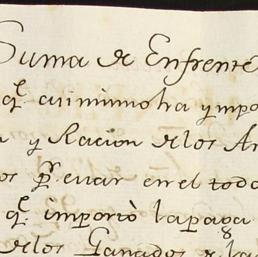 Suma de Enfrente
q.e asimimo ha ympo
a y Racion de los Ar
os p.r evar en el todo
q.e importò la paga
de los Ganados de la